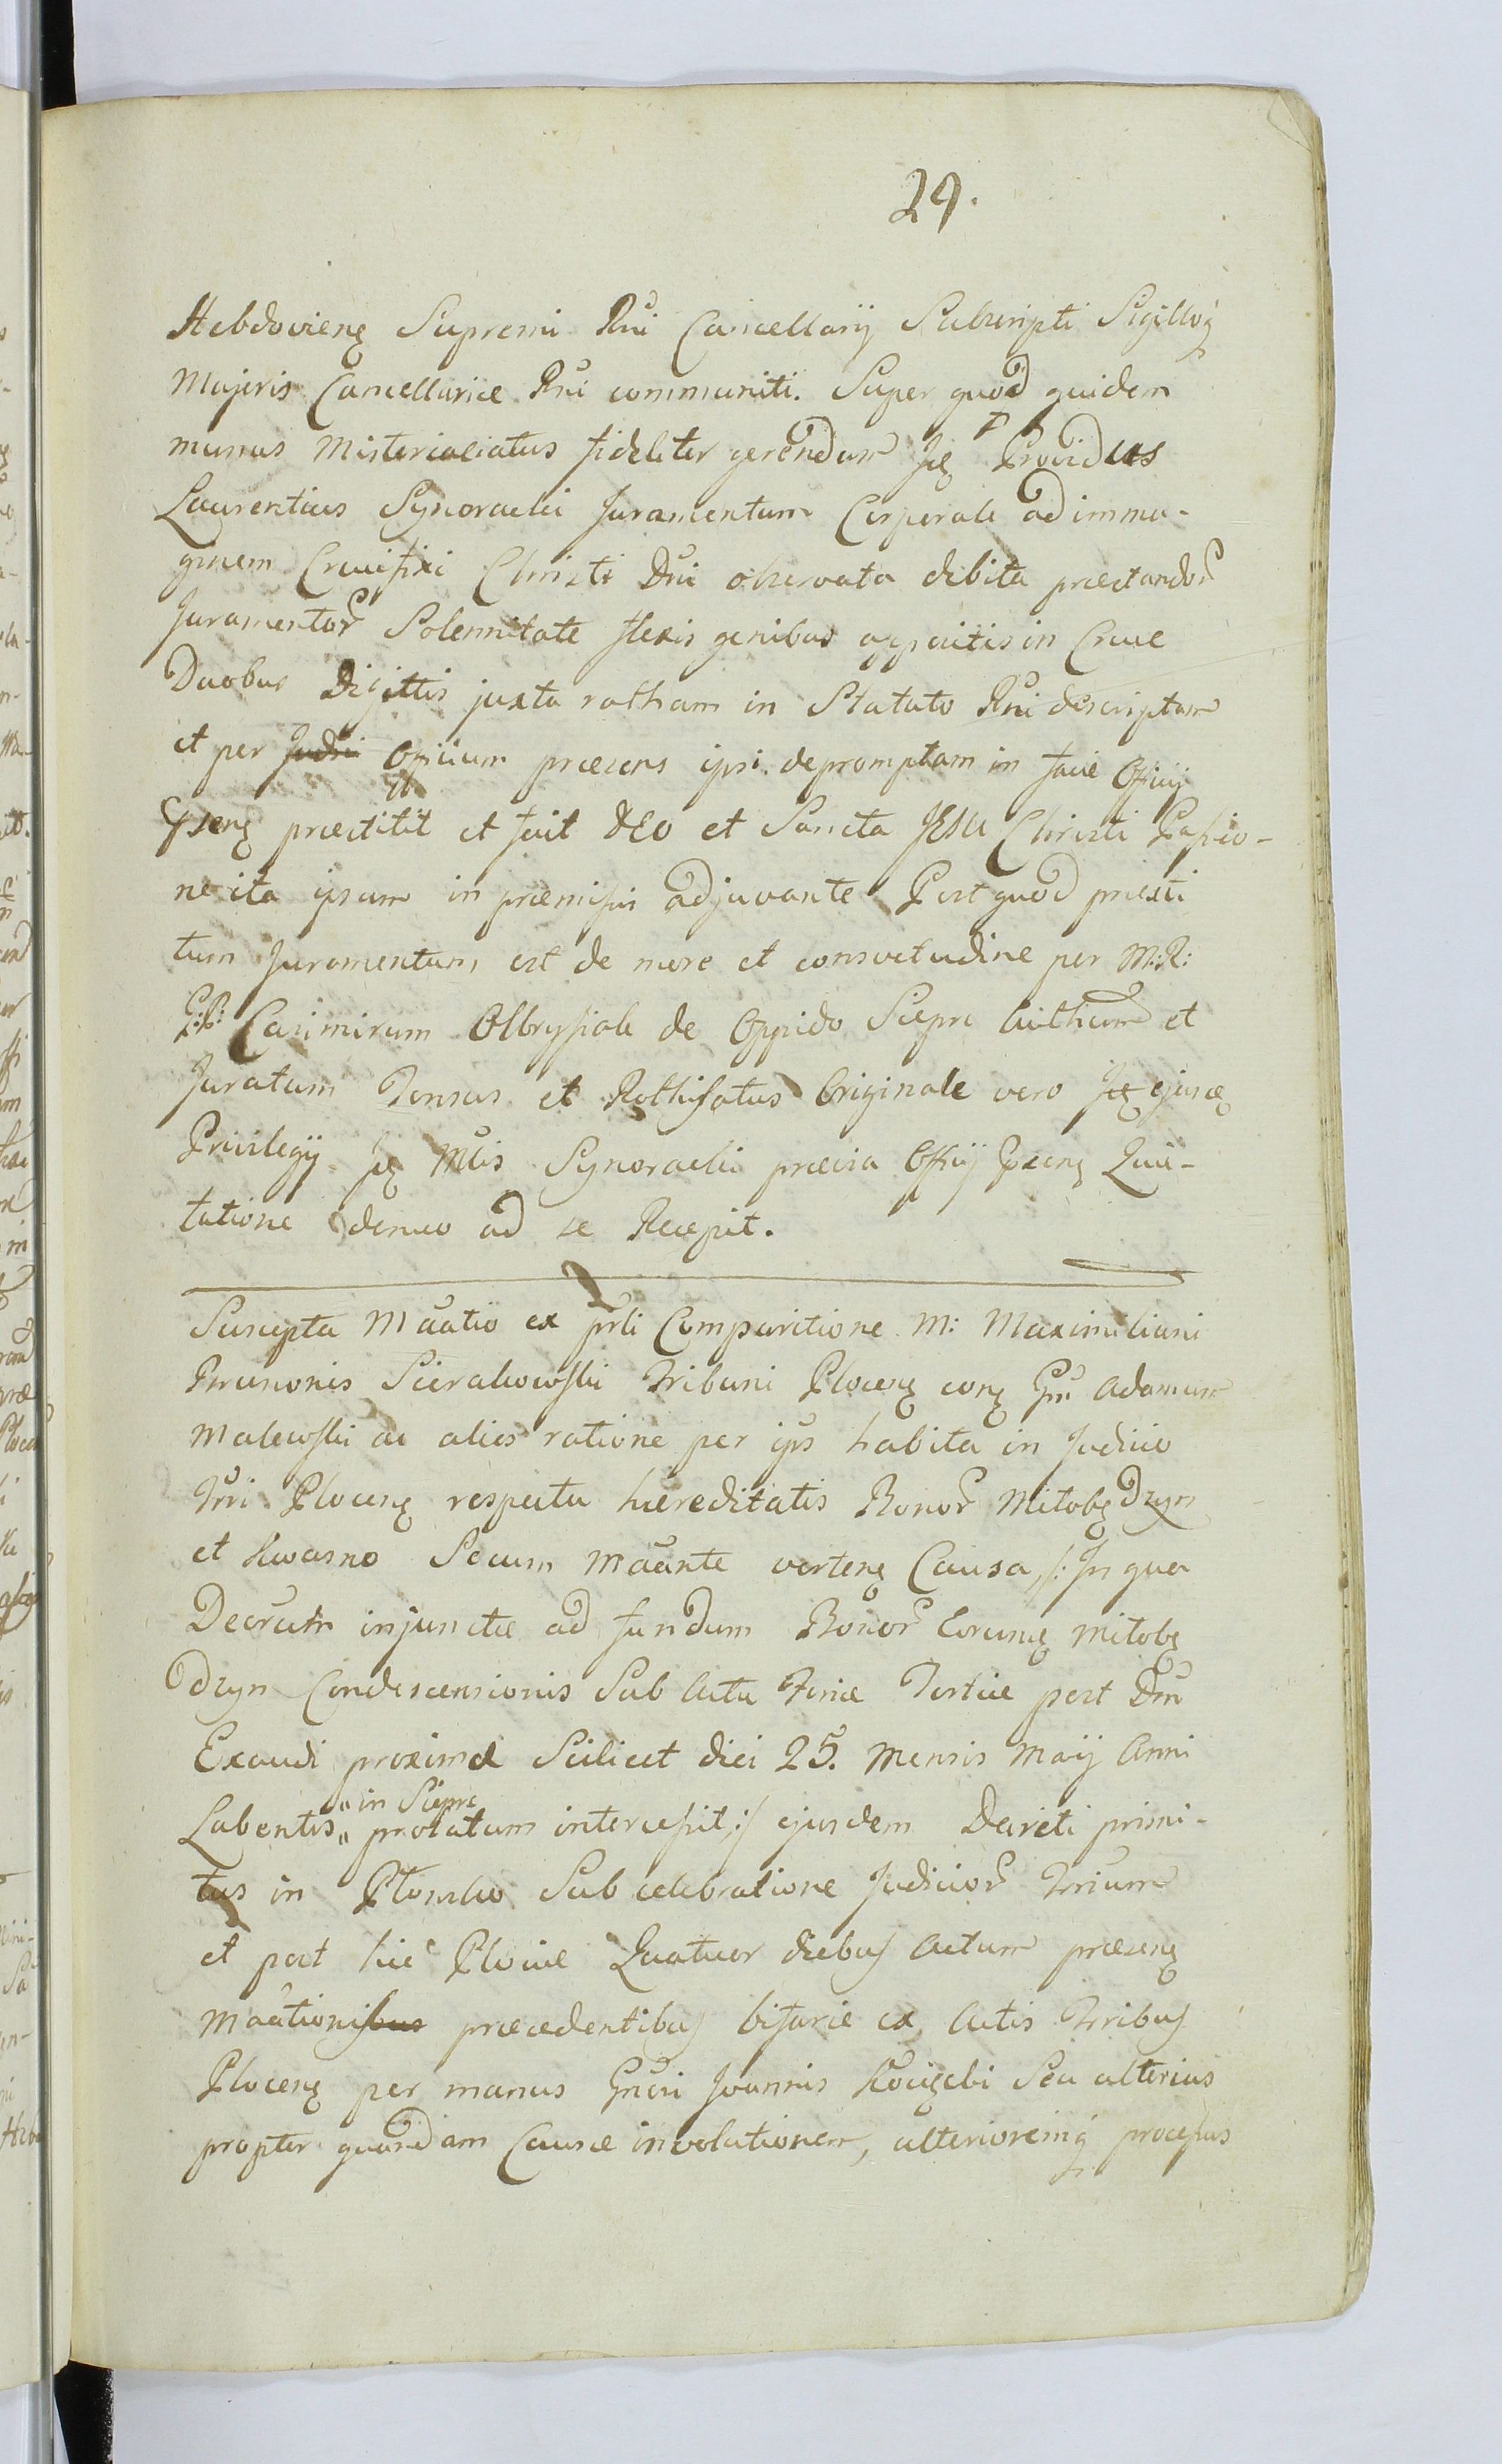 29.
Hebdovieng Supremi Rni Cancellarij Subscripti Sigilloq
Majoris Cancellariæ Rni communiti. Super quod quidem
munus Misterialiatus fideliter gerendum Jg Providus
Laurentius Synoracki Juramentum Corporale ad imma-
ginem Crucifixi Christi Dni observata debita præstandor
Juramentor Solennitate flexis genibus appositis in Cruce
Duobus Digittis juxta rotham in Statuto Rni descriptam
et per Officium præsens ipsi depromptam in facie Officij
præstitit et fuit DEO et Sancta JESU Christi Passio-
ne ita ipsum in præmissis adjuvante Post quod præsti
tum Juramentum est de more et consvetudine per M:R:
Casimirum Olbrysiak de Oppido Sieprc Authum et
Juratum Tonsus et Rothisatus Originale vero Jg ejusg
Privilegij Jg Mlis Synoracki prævia Officij Præseng Quie-
tatione denuo ad se Recepit.
Suscepta Maatio ex prli Comparitione M: Maximiliani
Brunonis Sierakowski Tribuni Ploceng cong Gm Adamum
Malewski ac alios ratione per ips habita in Judicio
Trri Ploceng respectu hæreditatis Bonor Mitobg Drzyn
et Kwasno Secum Maante verteng Causa, /: In qua
Decretu injunctæ ad fundum Bonor Eorung Mitobg
Drzyn Condescensionis Sub Actu Feriæ Tertiæ post Dm
Exaudi proximæ Scilicet diei 25. Mensis Maij Anni
Labentis "in Sieprc" prolatum intercessit, :/ ejusdem Decreti primi-
tus in Plonsko Sub celebratione Judicior Trrium
et post hic Plociæ Quatuor diebus Actum præseng
Maationi præcedentibus bifarie ex Actis Trribus
Ploceng per manus Gnosi Joannis Seu alterius
propter quandam Causæ involutionem, ulterioremq processus